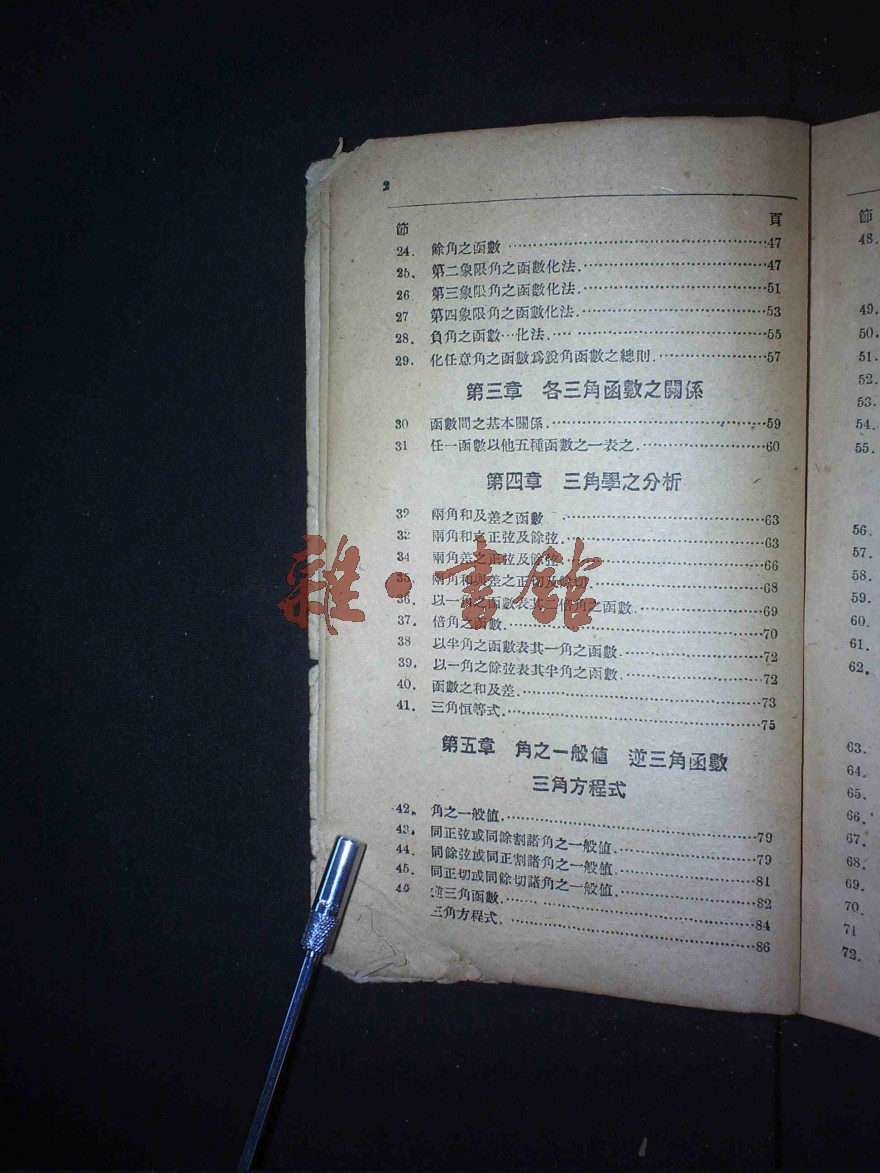 2
節 頁
24. 餘角之函數 47
25. 第二象限角之函數化法. 47
26 第三象限角之函數化法. 51
27 第四象限角之函數化法. 53
28. 負角之函數 化法. 55
29. 化任意角之函數爲銳角函數之總則. 57
第三章 各三角函數之關係
30 函數間之基本關係. 59
31 任一函數以他五種函數之一表之. 60
第四章 三角學之分析
32 兩角和及差之函數 63
33 兩角和之正弦及餘弦. 63
34 兩角差之正弦及餘弦. 66
35. 兩角和與差之正切及餘切. 68
36. 以一角之函數表其二倍角之函數. 69
37. 倍角之函數. 70
38 以半角之函數表其一角之函數. 72
39. 以一角之餘弦表其半角之函數. 72
40. 函數之和及差. 73
41. 三角恒等式. 75
第五章 角之一般値 逆三角函數
三角方程式
42. 角之一般値. 79
43. 同正弦或同餘割諸角之一般値. 79
44. 同餘弦或同正割諸角之一般値. 81
45. 同正切或同餘切諸角之一般値. 82
46 逆三角函數. 84
三角方程式. 86
雜·書館
節
48.
49.
50.
51.
52.
53.
54.
55.
56.
57.
58.
59.
60.
61.
62.
63.
64.
65.
66.
67.
68.
69.
70.
71
72.